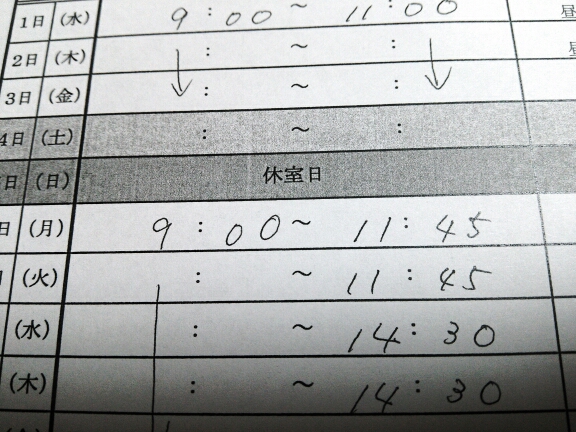 1日 (水) 9:00 ~ 11:00 昼
2日 (木) : ~ : 昼
3日 (金) : ~ :
4日 (土) : ~ :
日 (日) 休室日
日 (月) 9:00 ~ 11:45
(火) : ~ 11:45
(水) : ~ 14:30
(木) : ~ 14:30